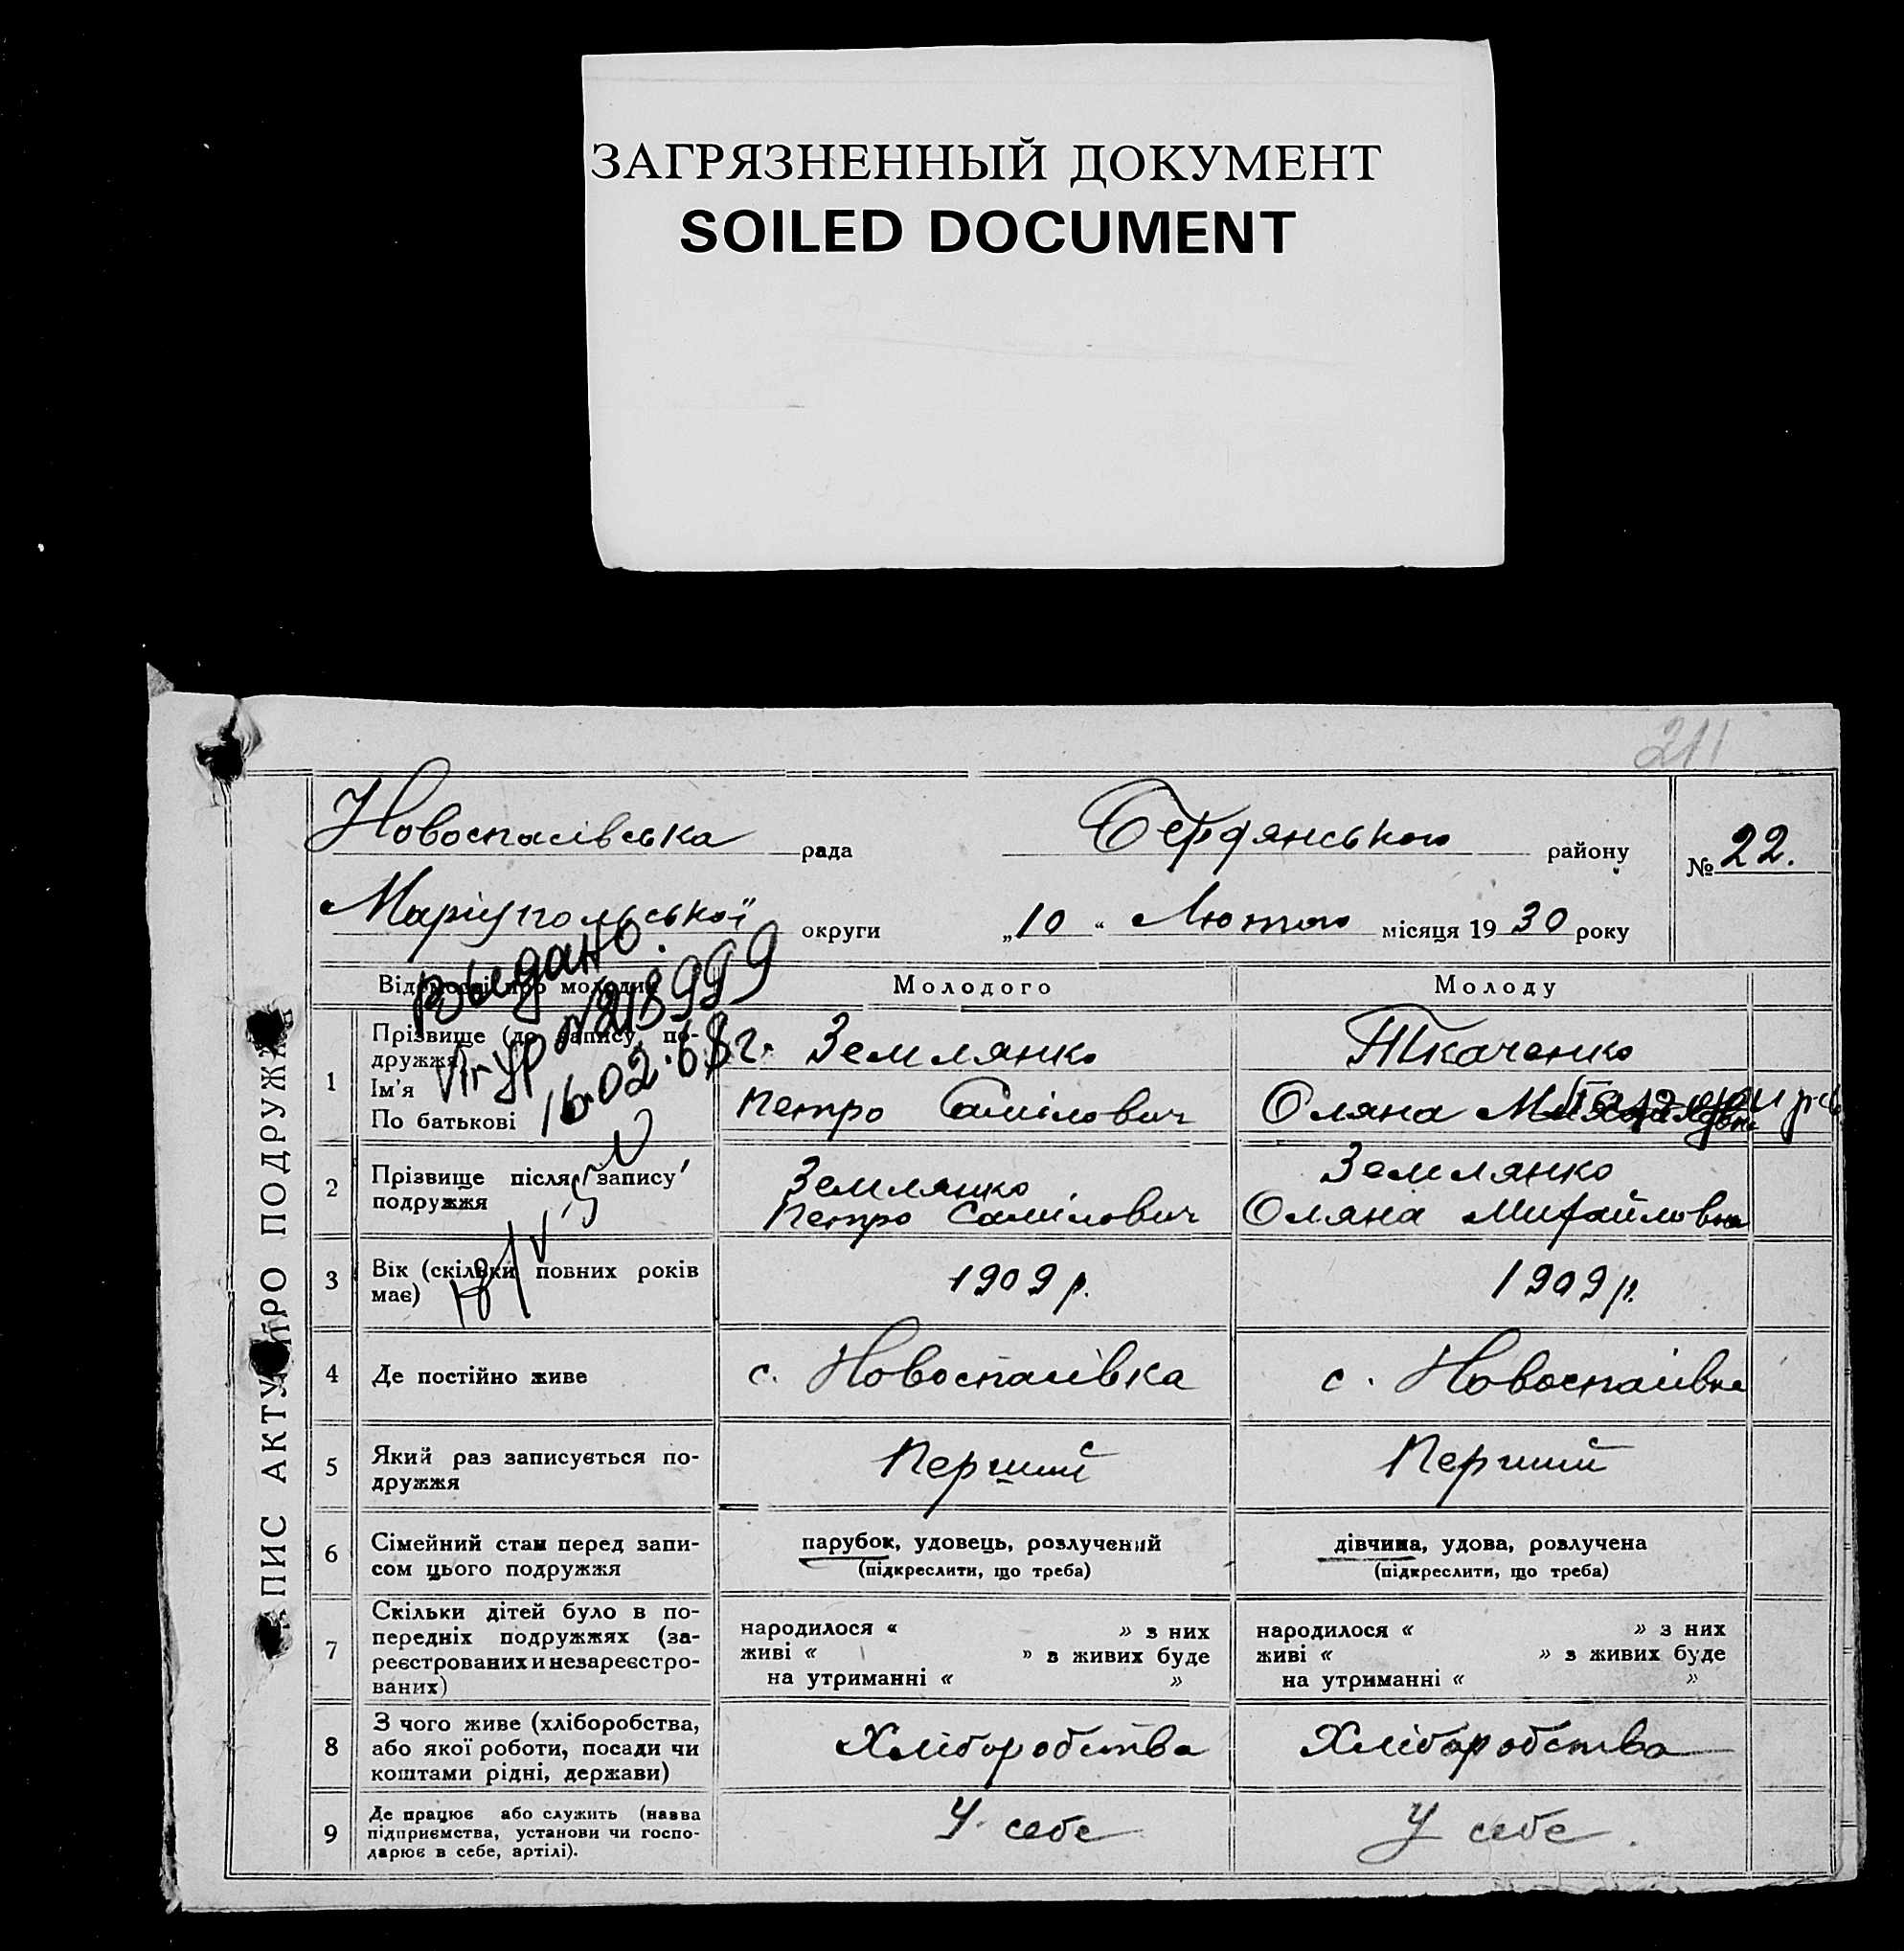 ЗАГРЯЗНЕННЫЙ ДОКУМЕНТ
SOILED DOCUMENT
211
Новоспасівська рада Бердянського району № 22.
Маріупольської округи „10“ Лютого місяця 1930 року
Выдано.
16.02.68 г.
ПИС АКТУ ПРО ПОДРУЖЖЯ
Відомості про молодих Молодого Молоду
1 Прізвище (до запису по-
дружжя)
Ім'я
По батькові
Землянко
Петро Самілович
Ткаченко
Оляна
2 Прізвище після запису
подружжя
Землянко
Петро Самілович
Землянко
Оляна Михайловна
3 Вік (скільки повних років
має)
1909 р.
1909 р.
4 Де постійно живе
с. Новоспасівка
с. Новоспасівка
5 Який раз записується по-
дружжя
Перший
Перший
6 Сімейний стан перед запи-
сом цього подружжя
парубок, удовець, розлучений
(підкреслити, що треба)
дівчина, удова, розлучена
(підкреслити, що треба)
7 Скільки дітей було в по-
передніх подружжях (за-
реєстрованих и незареєстро-
ваних)
народилося « » з них
живі « » з живих буде
на утриманні « »
народилося « » з них
живі « » з живих буде
на утриманні « »
8 З чого живе (хліборобства,
або якої роботи, посади чи
коштами рідні, держави)
Хліборобства
Хліборобства
9 Де працює або служить (назва
підприємства, установи чи госпо-
дарює в себе, артілі).
У себе
У себе.